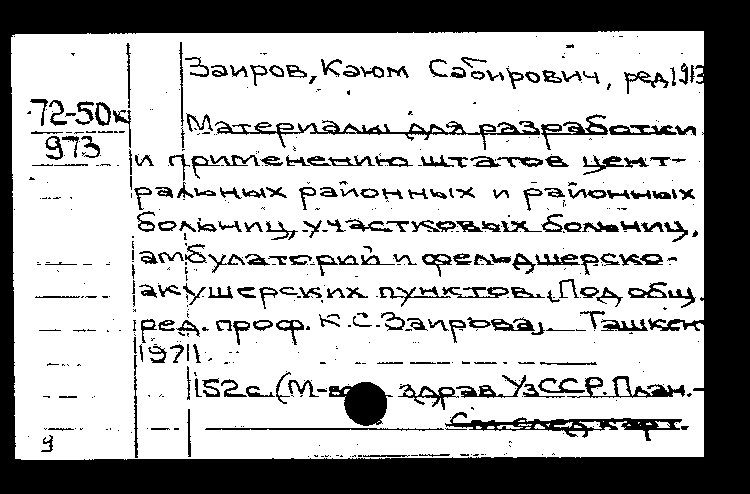 Заиров, Каюм Сабирович, ред. 1913
72-50к
973
Материалы для разработки
и применению штатов цент-
ральных районных и районных
больниц, участковых больниц,
амбулаторий и фельдшерско-
акушерских пунктов. [Под общ.
ред. проф. К.С. Заирова]. Ташкен
1971.
152 с. (М-во здрав. УзССР. План.-
См. след карт.
9